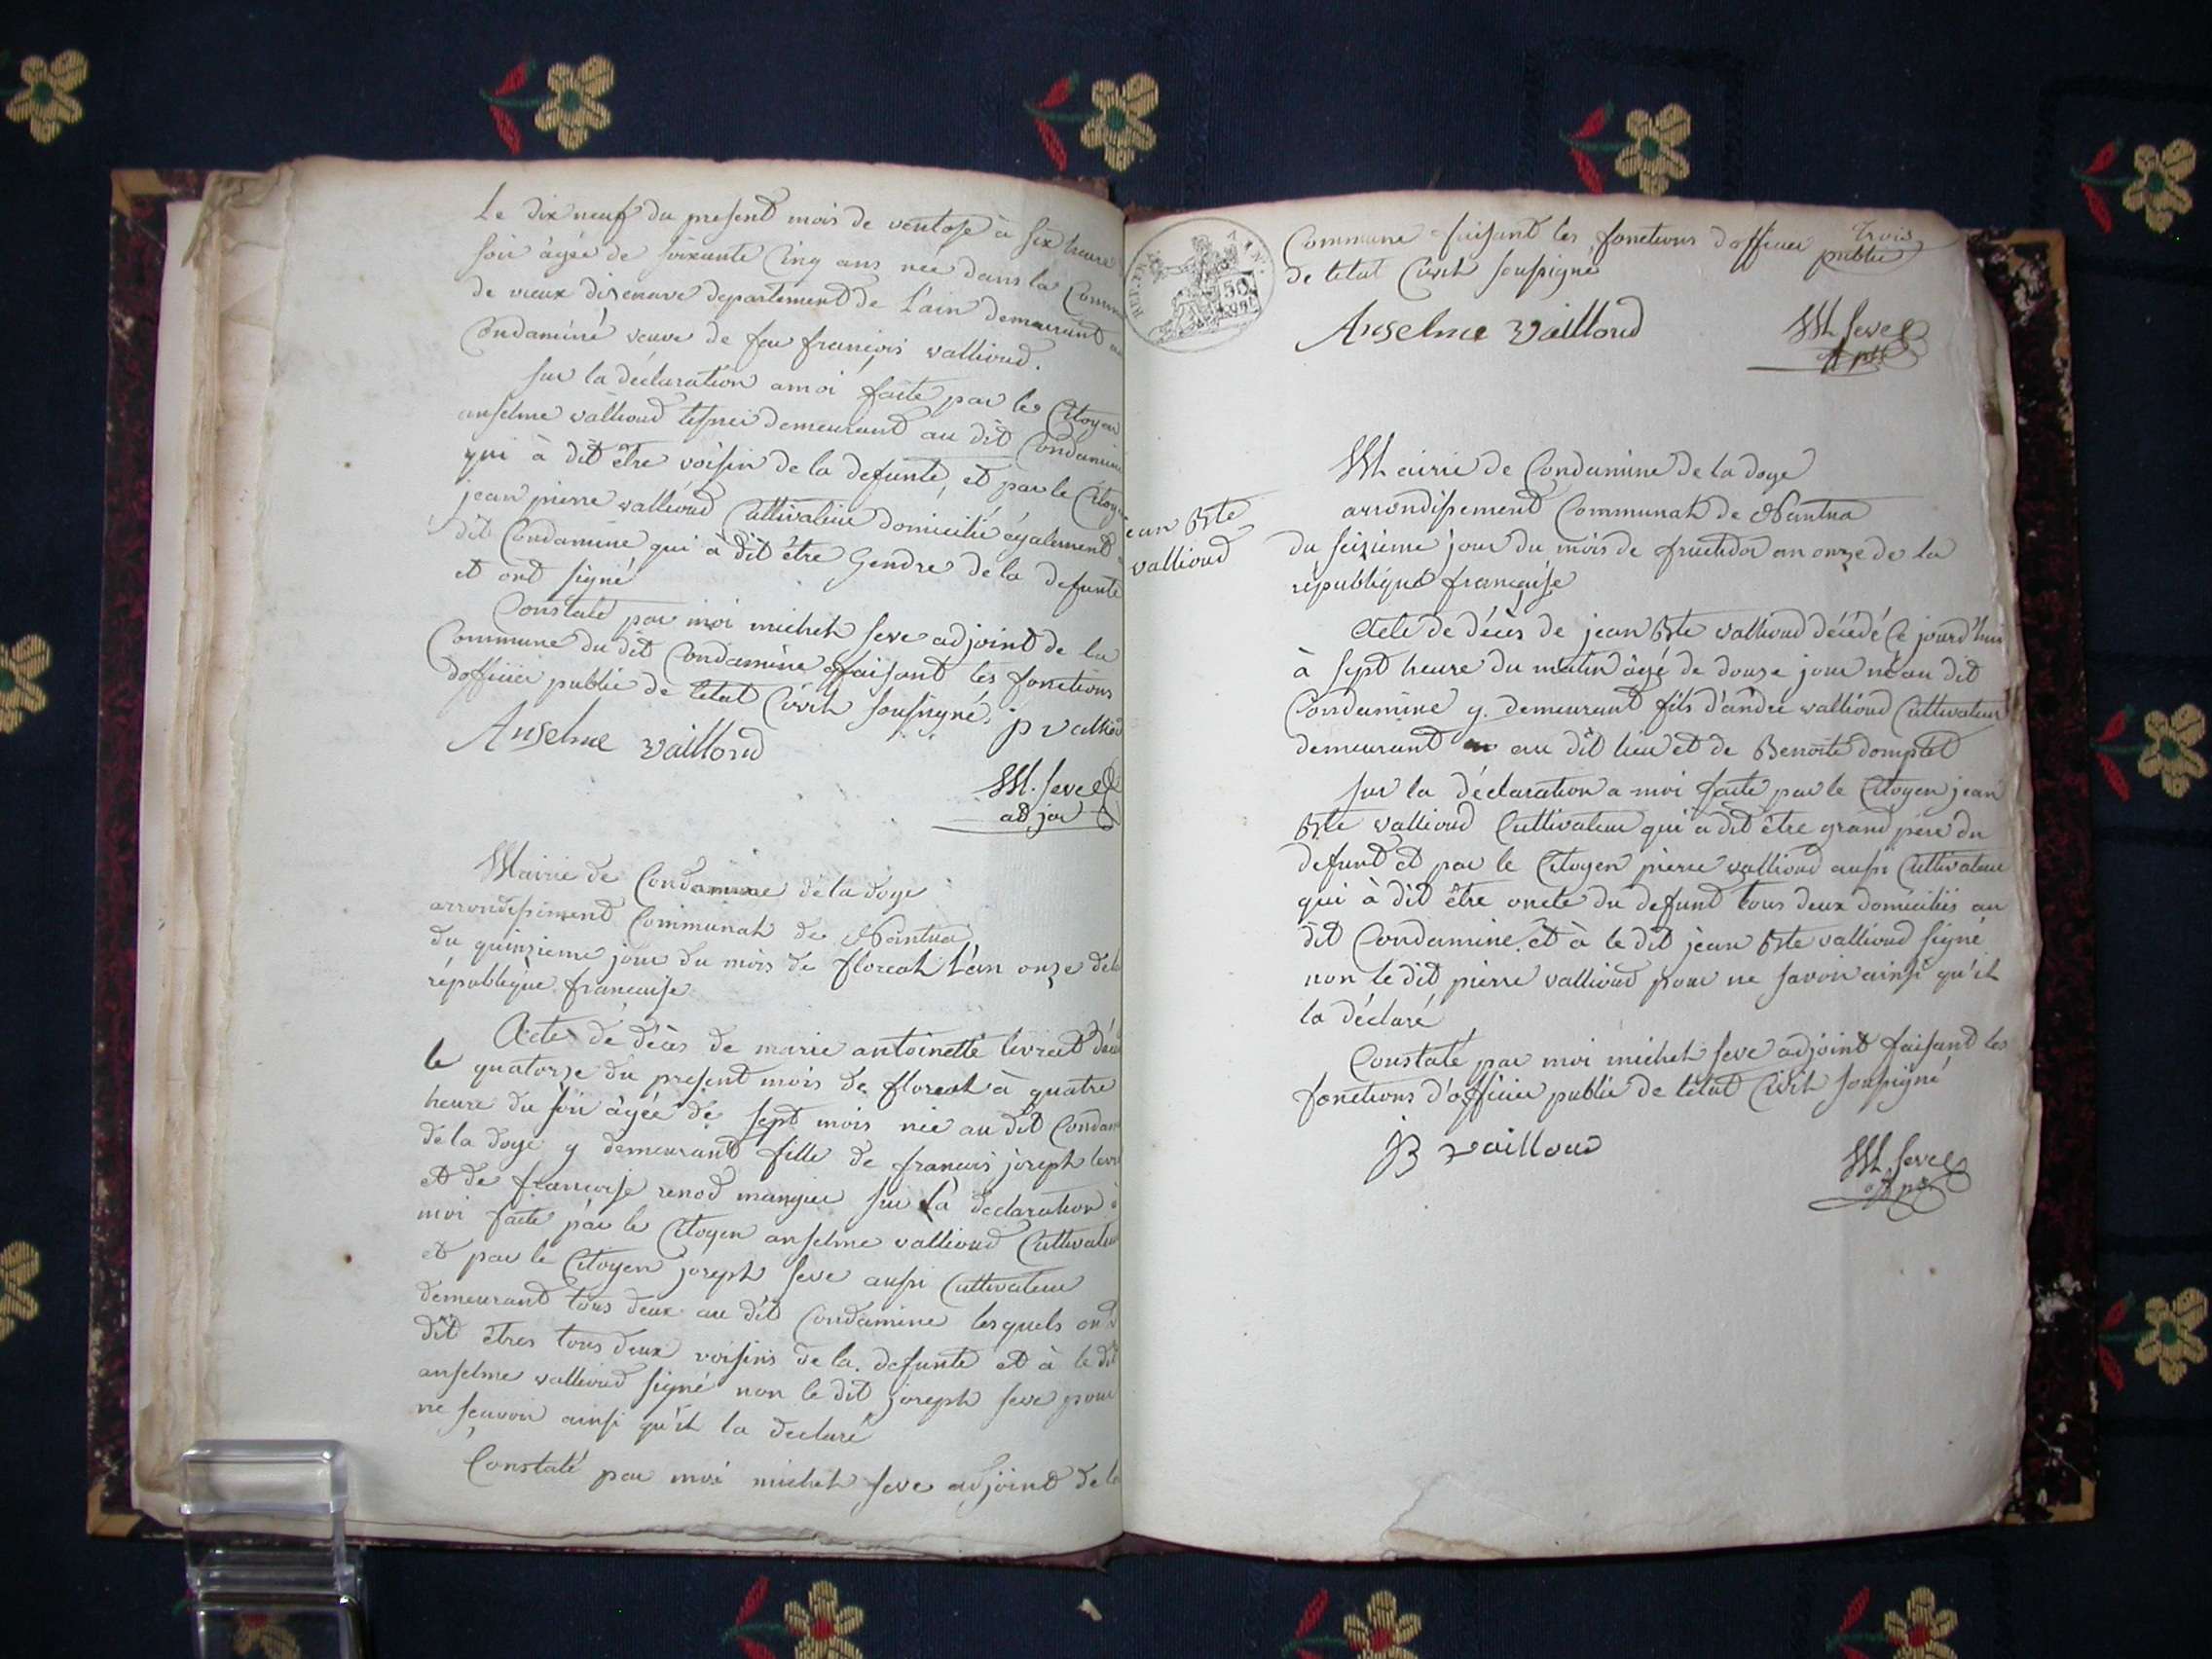 Le dix neuf du present mois de ventose à six heure
soir âgée de soixante cinq ans née dans la Comm
de vieux disenave departement de l'ain demeurant au
Condamine veuve de feu françois vallioud.
sur la déclaration a moi faite par le Citoyen
anselme vallioud demeurant au dit Condamine
qui à dit être voisin de la defunte, et par le Citoy
jean pierre vallioud Cultivateur domicilié également
dit Condamine qui à dit être Gendre de la defunte
et ont signé
Constaté par moi michel seve adjoint de la
Commune du dit Condamine faisant les fonctions
d'officier public de l'etat Civil soussigné.
Anselme vailloud
j p vallioud
M. seve
adjoi
Mairie de Condamine de la doye
arrondissement Communal de Nantua
du quinzieme jour du mois de floreal l'an onze de la
république française
Acte de décès de marie antoinette levrat décé
le quatorze du present mois de floreal à quatre
heure du soir âgée de sept mois née au dit Condam
de la doye y demeurant fille de francois joseph levr
et de françoise renod mangier sur la declaration à
moi faite par le Citoyen anselme vallioud Cultivateu
et par le Citoyen joseph seve aussi Cultivateur
demeurant tous deux au dit Condamine lesquels ont
dit êtres tous deux voisins de la defunte et à le dit
anselme vallioud signé non le dit joseph seve pour
ne scavoir ainsi qu'il la declaré
Constaté par moi michel seve adjoint de la
trois
REP. FRA.
50
Commune faisant les fonctions d'officier public
de l'etat Civil soussigné
Anselme vailloud
M seve
ean Bte
vallioud
Mairie de Condamine de la doye
arrondissement Communal de Nantua
du seizieme jour du mois de fructidor an onze de la
république française
Acte de décès de jean Bte vallioud décédé ce jourd'hui
à sept heure du matin âgé de douze jour né au dit
Condamine y demeurant fils d'andré vallioud Cultivateur
demeurant au dit lieu et de Benoite domptet
sur la déclaration a moi faite par le Citoyen jean
Bte vallioud Cultivateur qui a dit être grand père du
defunt et par le Citoyen pierre vallioud aussi Cultivateur
qui à dit être oncle du defunt tous deux domiciliés au
dit Condamine. et à le dit jean Bte vallioud signé
non le dit pierre vallioud pour ne savoir ainsi qu'il
la déclaré
Constaté par moi michel seve adjoint faisant les
fonctions d'officier public de l'etat Civil soussigné
JB vailloud
M seve